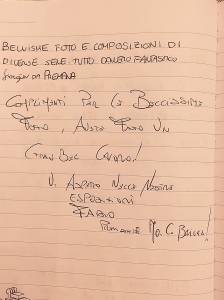 BELLISSIME FOTO E COMPOSIZIONI DI
DIVERSE SERE TUTTO DAVVERO FANTASTICO
COMPLIMENTI PER LE BELLISSIME
FOTO, AVETE FATTO UN
GRAN BEL LAVORO!
VI ASPETTO NELLE NOSTRE
ESPOSIZIONI
FABIO